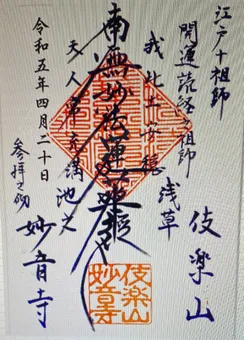 江戸十祖師
開運読経の祖師
浅草
伎楽山
我此土安穏
南無妙法蓮華経
天人常充満
令和五年四月二十日
参拝之砌
妙音寺
伎楽山
妙音寺